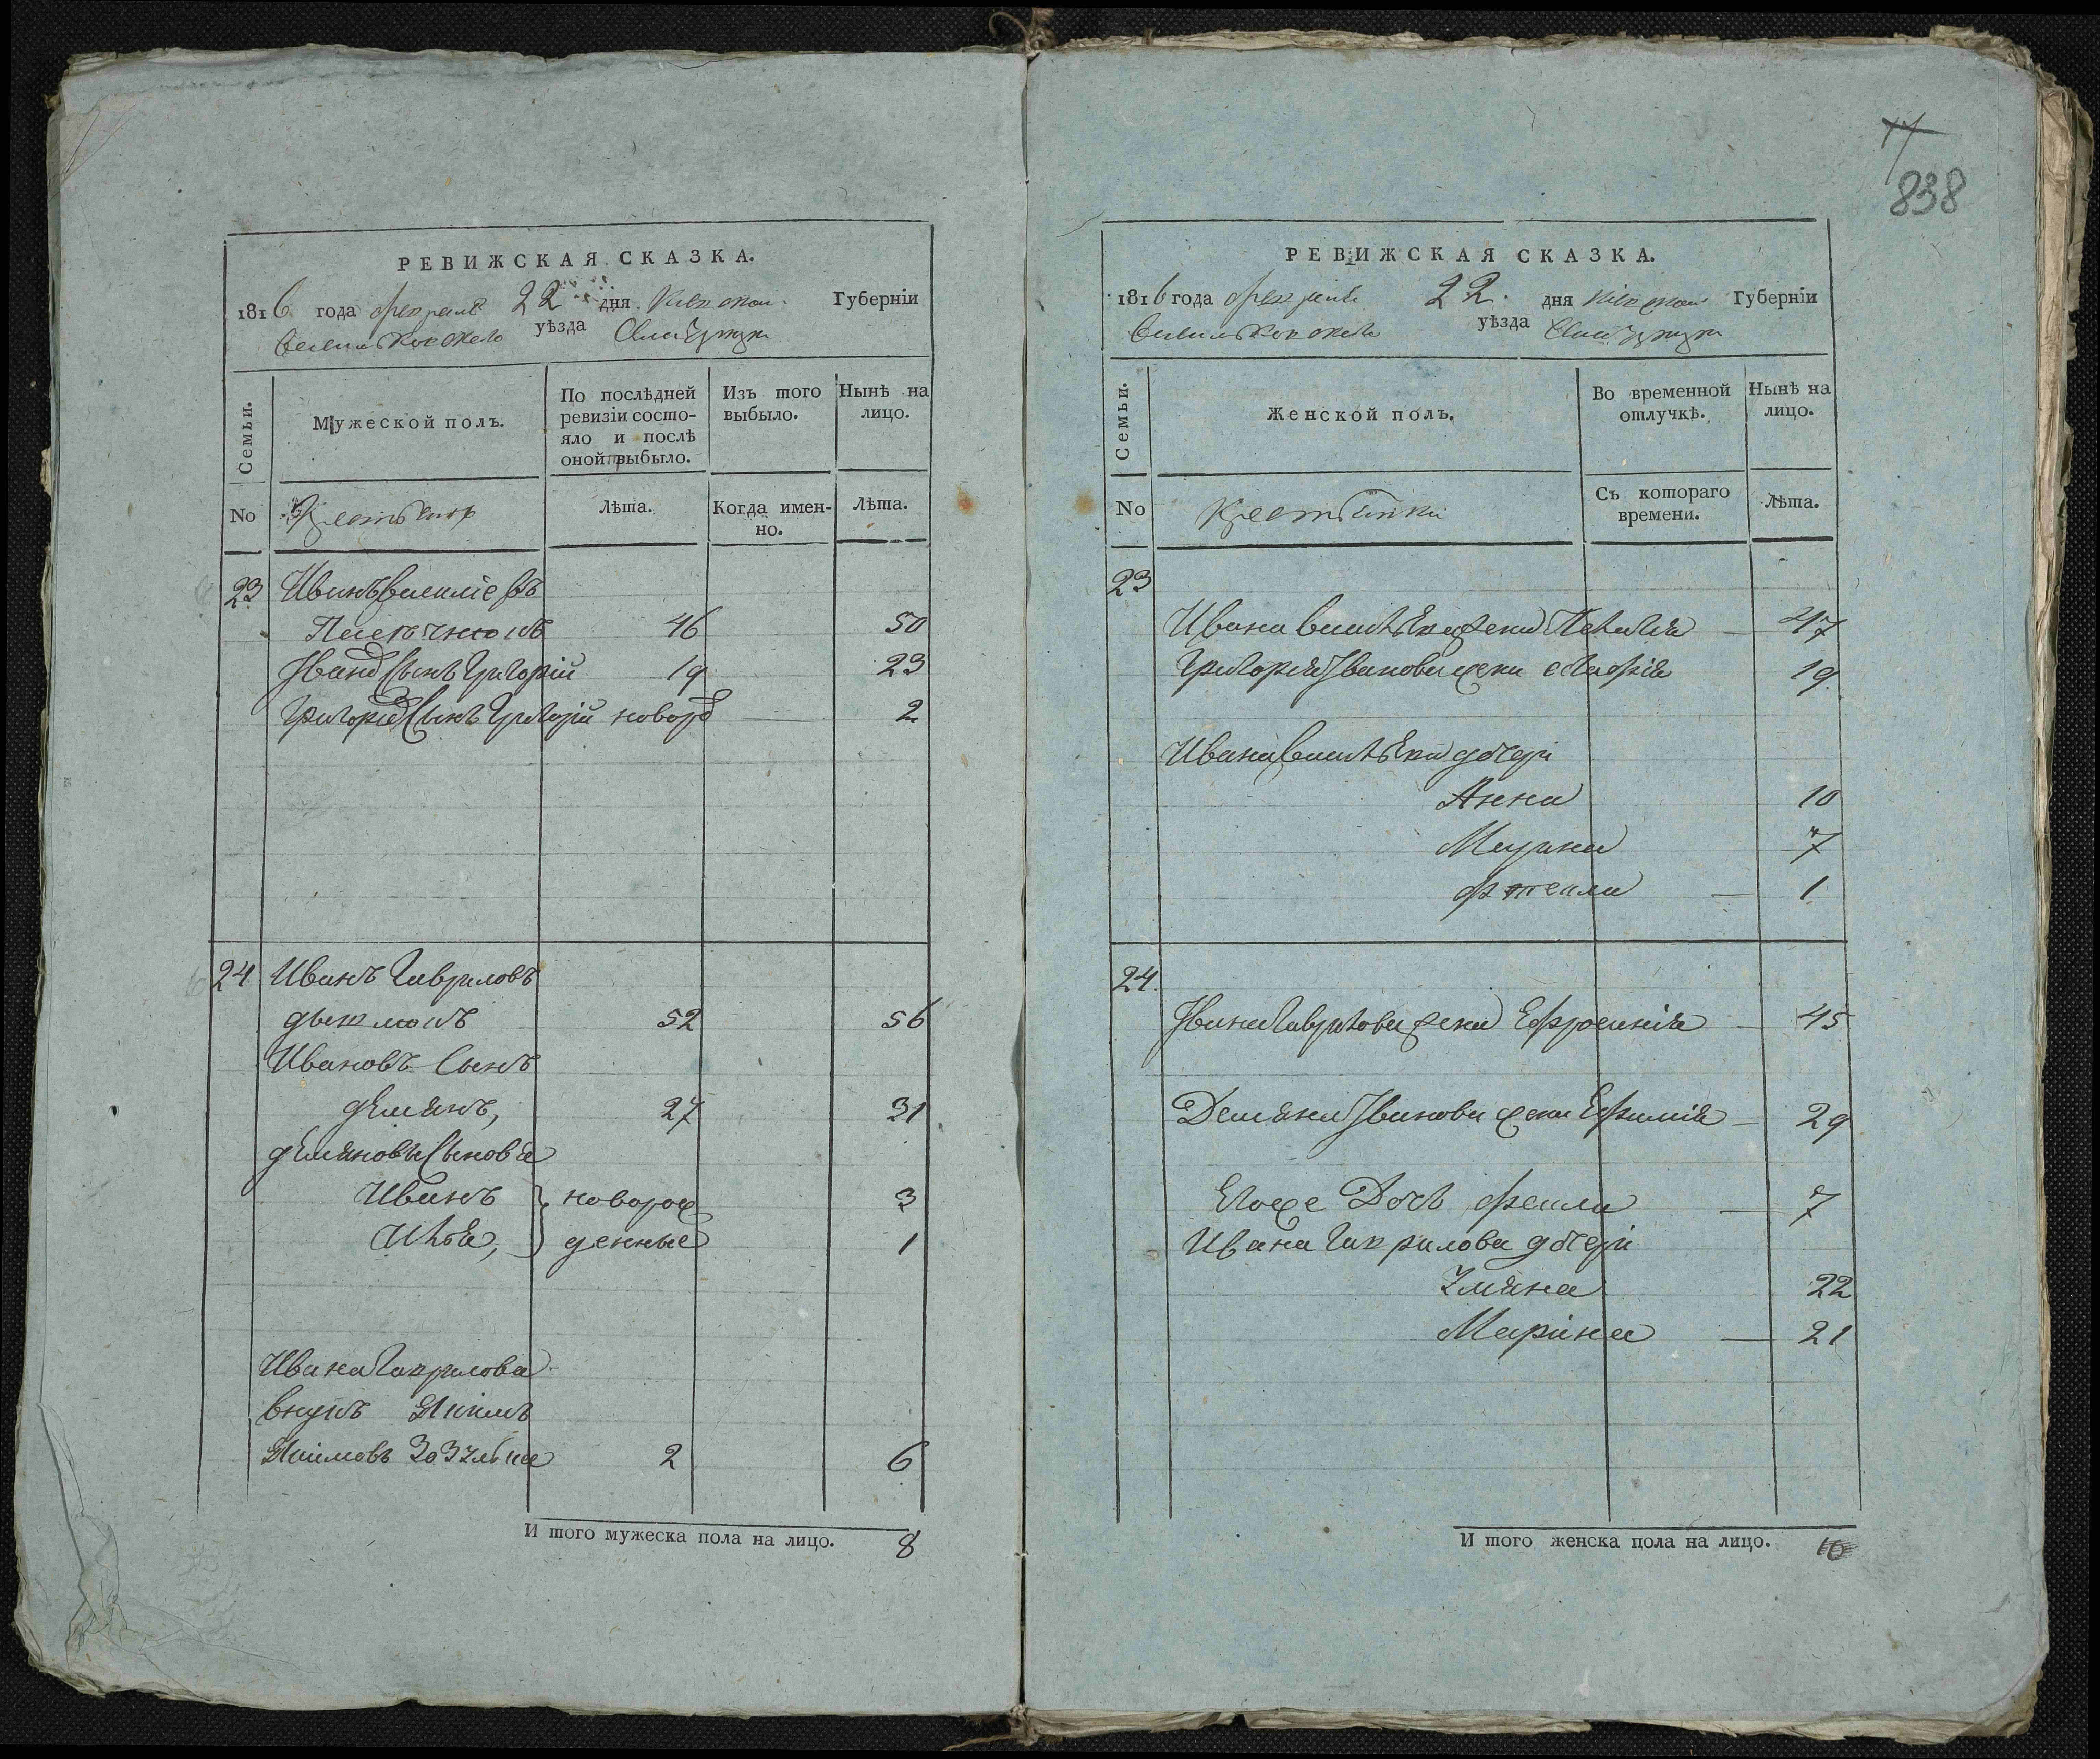 РЕВИЖСКАЯ СКАЗКА.
1816 года февраля 22 дня Киевской Губерніи
Васильковского уѣзда
Семьи.
Мужеской полъ.
По послѣдней
ревизіи состо-
яло и послѣ
оной прибыло.
Изъ того
выбыло.
Нынѣ на
лицо.
No
Крестьянъ
Лѣта.
Когда имен-
но.
Лѣта.
23 Иванъ Василіевъ
46 50
Ивана Сынъ Григорій 19 23
Григорія Сынъ Григорій новорож 2
24 Иванъ Гавриловъ
52 56
Ивановъ Сынъ
демянъ, 27 31
демяновы Сыновя
Иванъ новорож 3
Илья, денные 1
Ивана Гаврилова
внукъ Якимъ
Якимовъ 2 6
И того мужеска пола на лицо. 8
17
838
РЕВИЖСКАЯ СКАЗКА.
1816 года февраля 22 дня Киевской Губерніи
Васильковского уѣзда
Семьи.
Женской полъ.
Во временной
отлучкѣ.
Нынѣ на
лицо.
No
Крестьянки
Съ котораго
времени.
Лѣта.
23
Ивана жена 47
Григорія Иванова жена 19
Ивана дочери
Анна 10
Марина 7
Фтекла 1
24.
Ивана Гаврилова жена Ефросинія 45
Демяна Иванова жена Ефимія 29
Егоже Дочь Фекла 7
Ивана Гаврилова дочери
Уляна 22
Марина 21
И того женска пола на лицо. 10